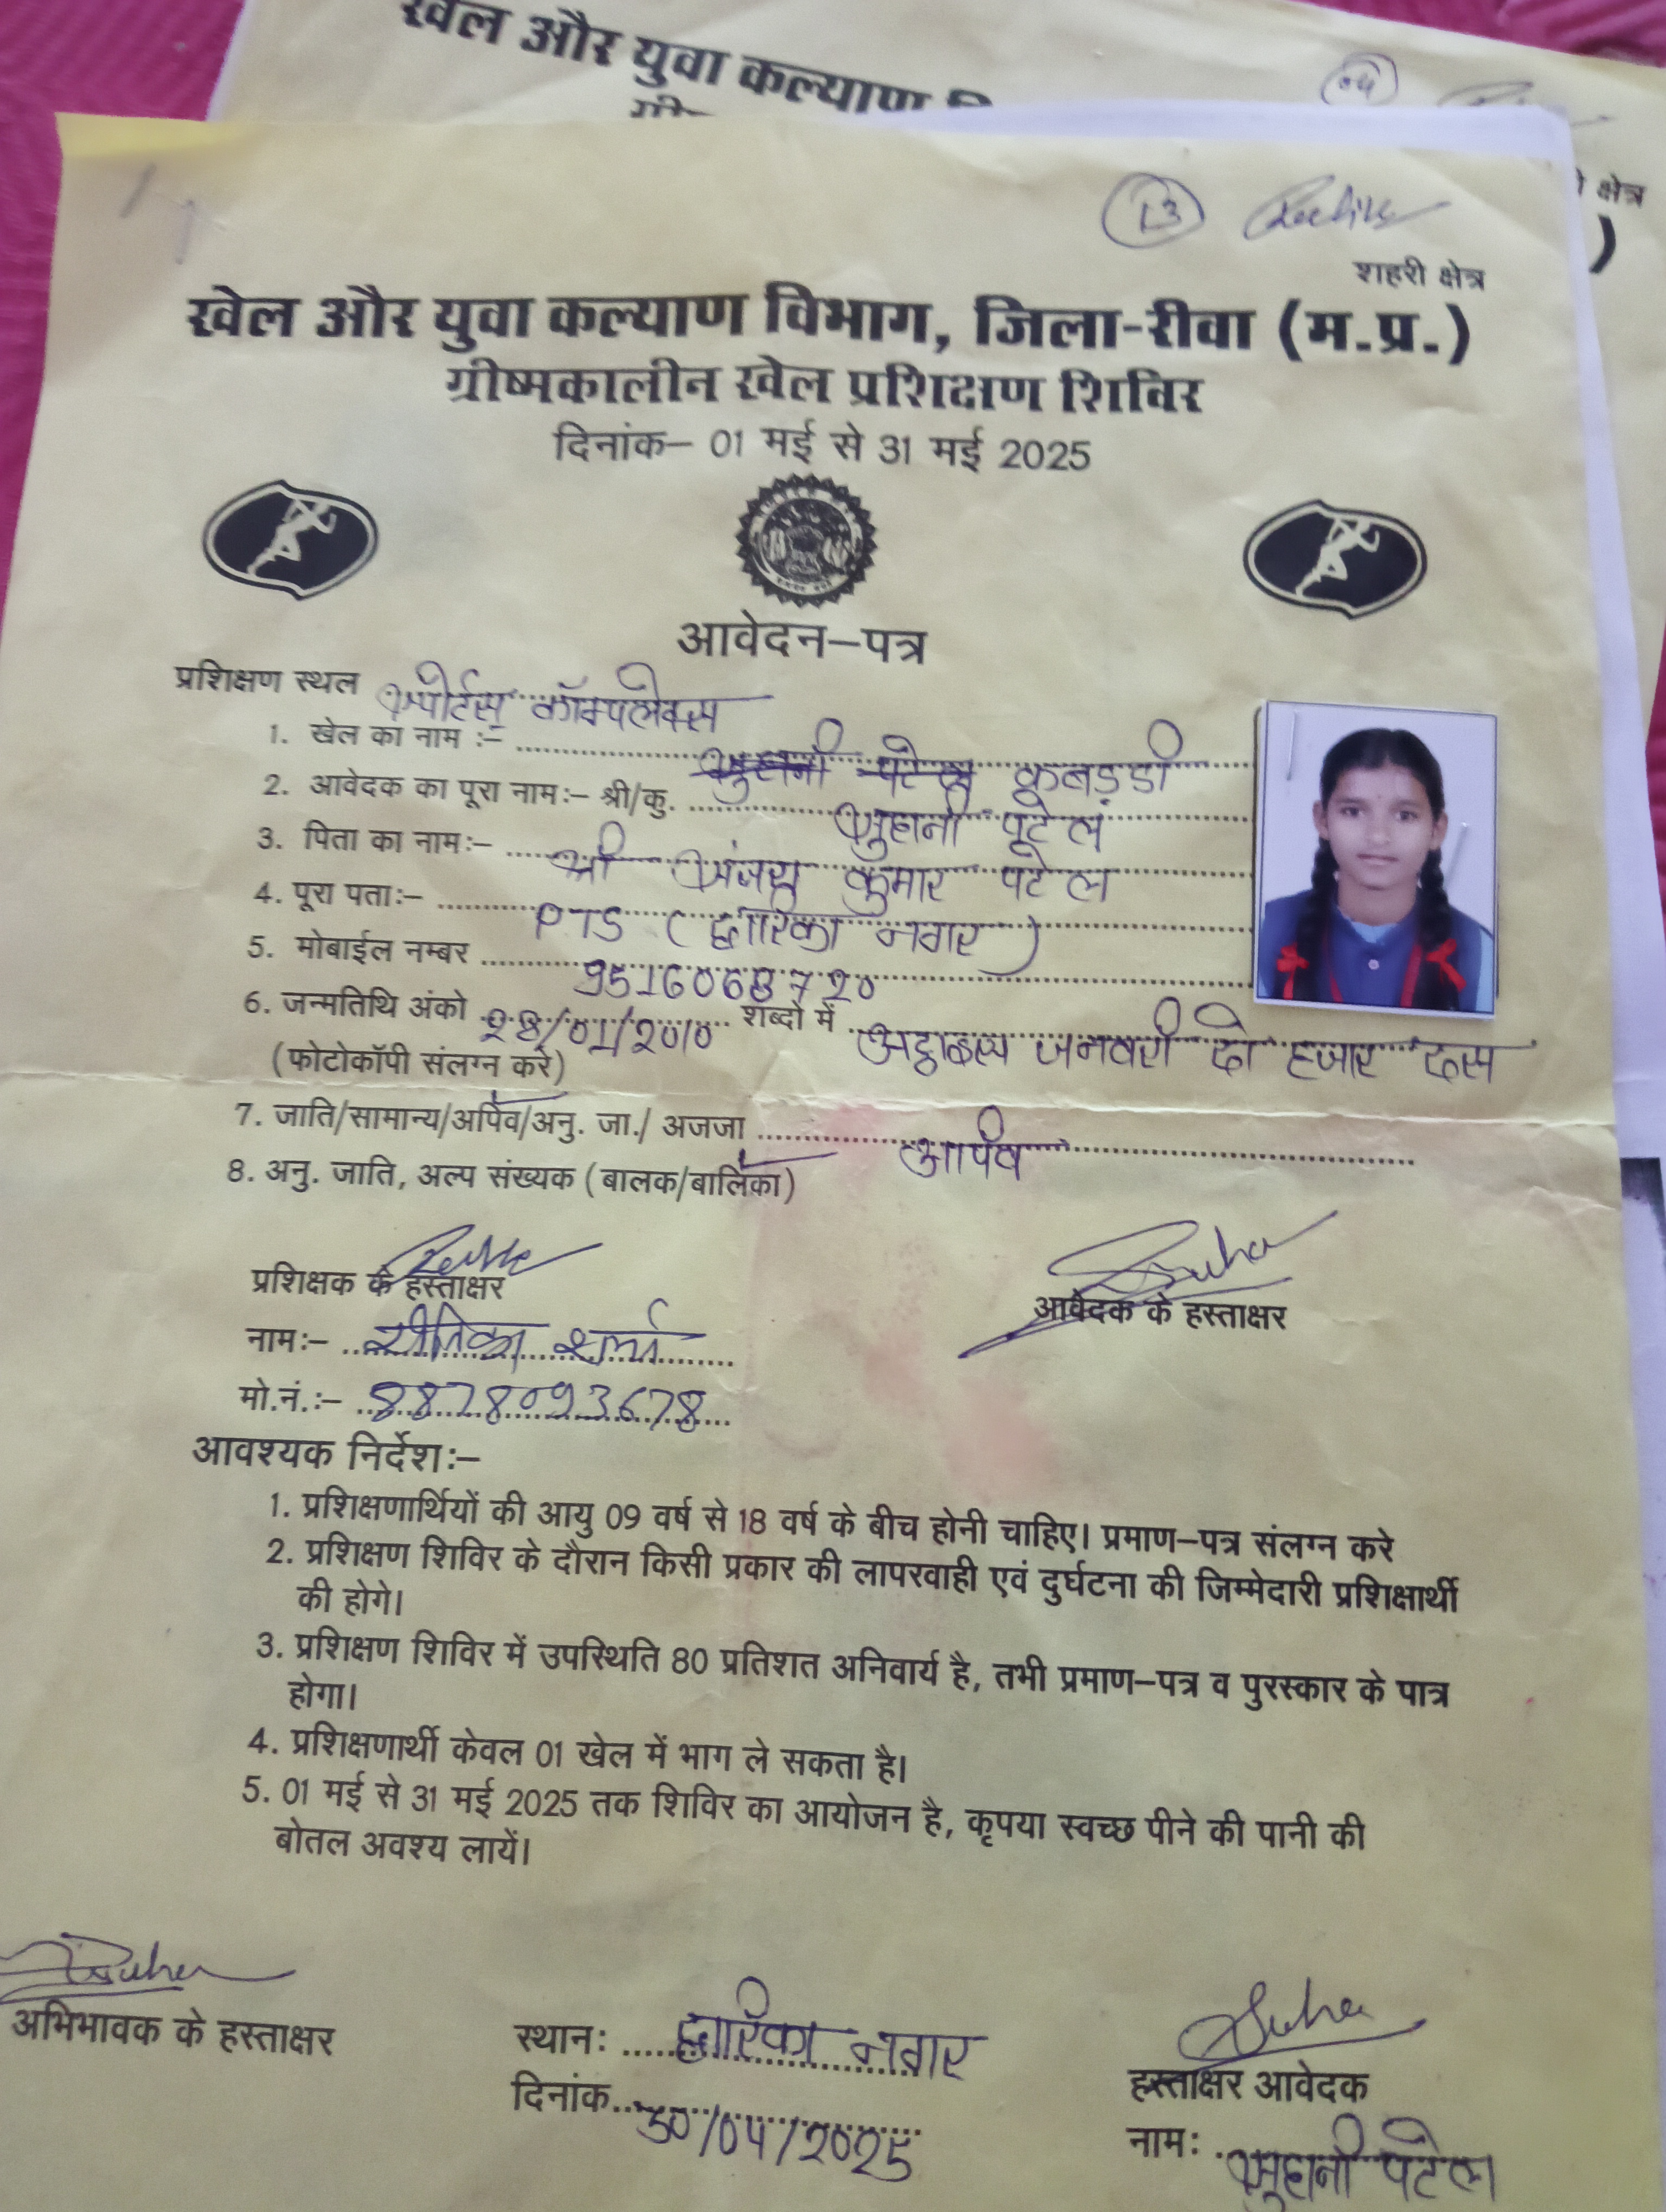 खेल और युवा कल्याण
क्षेत्र
)
13
शहरी क्षेत्र
खेल और युवा कल्याण विभाग, जिला-रीवा (म.प्र.)
ग्रीष्मकालीन खेल प्रशिक्षण शिविर
दिनांक– 01 मई से 31 मई 2025
आवेदन–पत्र
प्रशिक्षण स्थल स्पोर्टस् कॉम्पलेक्स
1. खेल का नाम :– सुहानी पटेल कबड्डी
2. आवेदक का पूरा नामः– श्री/कु. सुहानी पटेल
3. पिता का नामः– श्री संजय कुमार पटेल
4. पूरा पताः– PTS (द्वारिका नगर)
5. मोबाईल नम्बर
6. जन्मतिथि अंको 28/01/2010 शब्दो में अट्ठाइस जनवरी दो हजार दस
(फोटोकॉपी संलग्न करे)
7. जाति/सामान्य/अपिव/अनु. जा./ अजजा आपिव
8. अनु. जाति, अल्प संख्यक (बालक/बालिका)
प्रशिक्षक के हस्ताक्षर
Suha
आवेदक के हस्ताक्षर
नामः– शर्मा
मो.नं.:– 8878093678
आवश्यक निर्देशः–
1. प्रशिक्षणार्थियों की आयु 09 वर्ष से 18 वर्ष के बीच होनी चाहिए। प्रमाण–पत्र संलग्न करे
2. प्रशिक्षण शिविर के दौरान किसी प्रकार की लापरवाही एवं दुर्घटना की जिम्मेदारी प्रशिक्षार्थी
की होगे।
3. प्रशिक्षण शिविर में उपस्थिति 80 प्रतिशत अनिवार्य है, तभी प्रमाण–पत्र व पुरस्कार के पात्र
होगा।
4. प्रशिक्षणार्थी केवल 01 खेल में भाग ले सकता है।
5. 01 मई से 31 मई 2025 तक शिविर का आयोजन है, कृपया स्वच्छ पीने की पानी की
बोतल अवश्य लायें।
Suha
अभिभावक के हस्ताक्षर
स्थानः द्वारिका नगर
दिनांक 30/04/2025
Suha
हस्ताक्षर आवेदक
नामः सुहानी पटेल